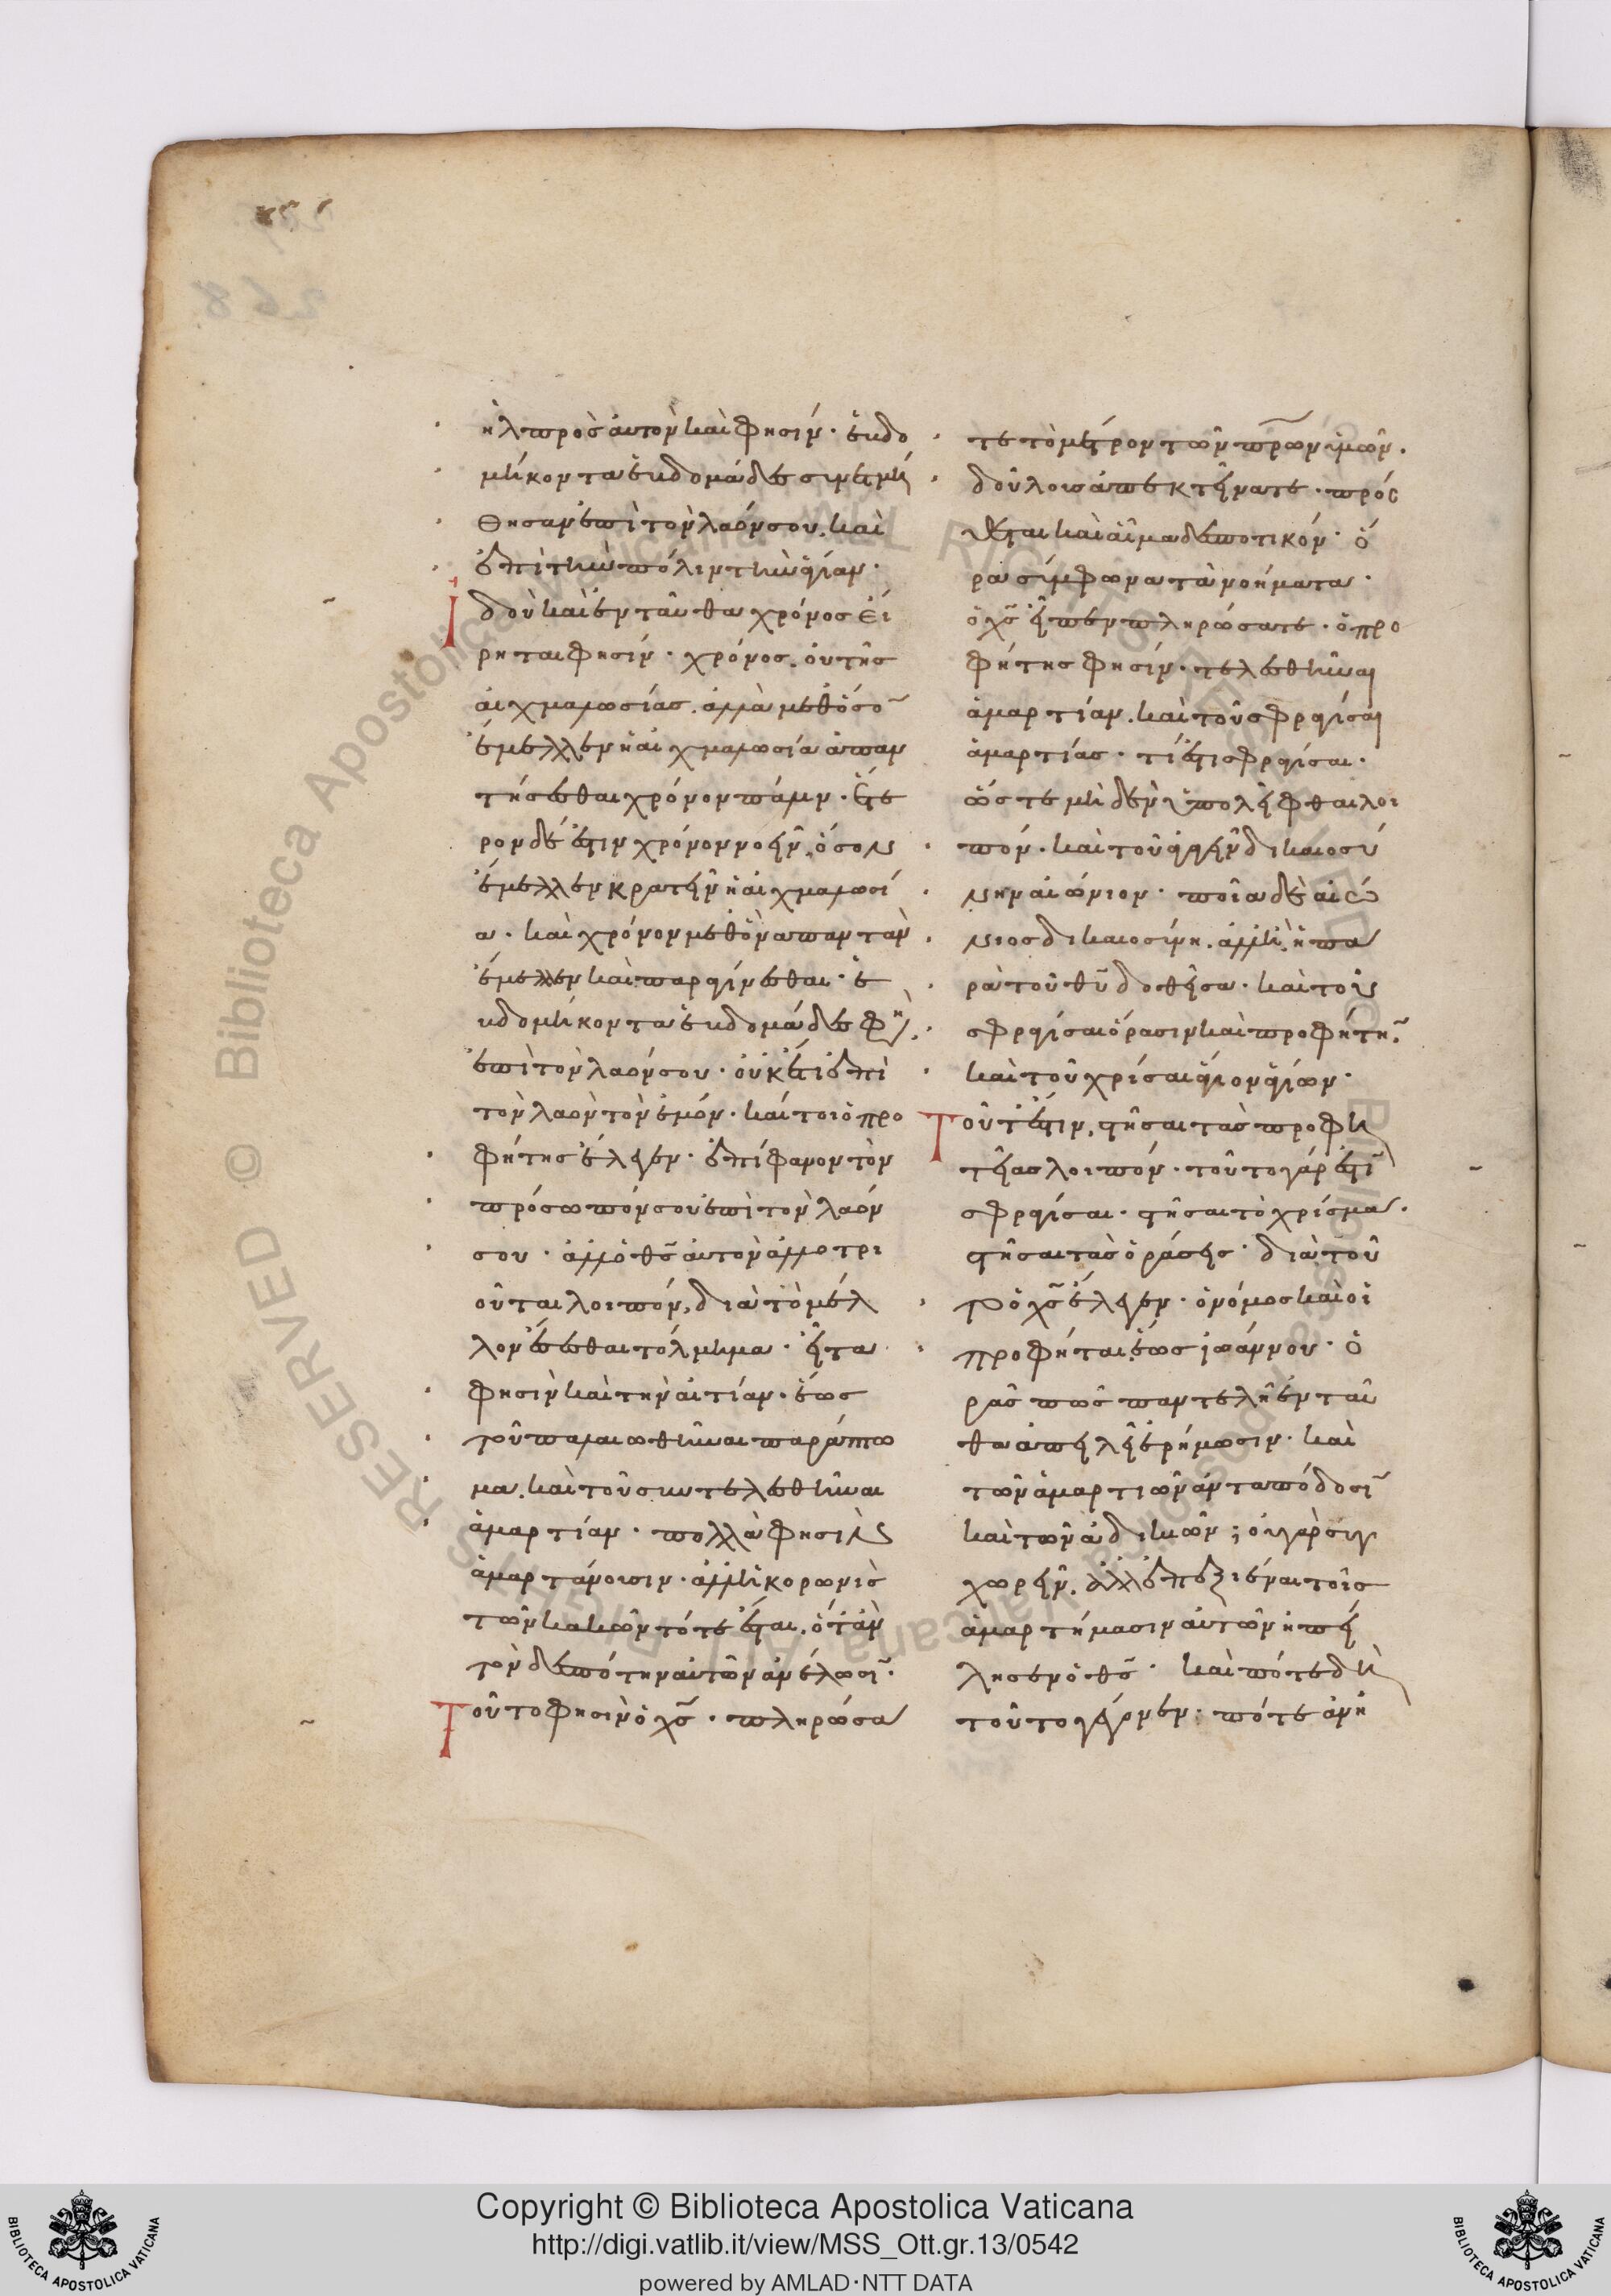 ὴλ πρὸς αὐτὸν καὶ φησίν· ἑβδο
μήκοντα ἑβδομάδες συνετμή
θησαν ἐπὶ τὸν λαόν σου, καὶ
ἐπὶ τὴν πόλιν τὴν ἁγίαν·
Ἰδοὺ καὶ ἐνταῦθα χρόνος εἴ
ρηται φησίν· χρόνος, οὐ τῆς
αἰχμαλωσίας, ἀλλὰ μεθ' ὅσον
ἔμελλεν ἡ αἰχμαλωσία ἀπαν
τήσεσθαι χρόνον πάλιν· ἕτε
ρον δέ ἐστιν χρόνον νοεῖν, ὅσον
ἔμελλεν κρατεῖν ἡ αἰχμαλωσί
α· καὶ χρόνον μεθ' ὃν ἀπαντᾶν
ἔμελλεν καὶ παραγίνεσθαι· ἑ
βδομήκοντα ἑβδομάδες φη
ἐπὶ τὸν λαόν σου· οὐκ ἔτι ἐπὶ
τὸν λαὸν τὸν ἐμόν· καίτοι ὁ προ
φήτης ἔλεγεν· ἐπίφανον τὸν
πρόσωπόν σου ἐπὶ τὸν λαόν
σου· ἀλλ' ὁ θς αὐτὸν ἀλλοτρι
οῦται λοιπόν, διὰ τὸ μέλ
λον ἔσεσθαι τόλμημα· εἶτα
φησὶν καὶ τὴν αἰτίαν· ἕως
τοῦ παλαιωθῆναι παράπτω
μα, καὶ τοῦ συντελεσθῆναι
ἁμαρτίαν· πολλὰ φησὶν
ἁμαρτάνουσιν· ἀλλ' ἡ κορωνὶς
τῶν κακῶν τότε ἔσται, ὅταν
τὸν δεσπότην αὐτῶν ἀνέλωσιν·
Τοῦτο φησὶν ὁ χς· πληρώσα
τε τὸ μέτρον τῶν πρων ὑμῶν·
δούλους ἀπεκτείνατε· πρός
κειται καὶ αἷμα δεσποτικόν· ὅ
ρα σύμφωνα τὰ νοήματα·
ὁ χς εἶπεν πληρώσατε· ὁ προ
φήτης φησίν· τελεσθῆναι
ἁμαρτίαν, καὶ τοῦ σφραγίσαι
ἁμαρτίας· τί ἐστι σφραγίσαι·
ὥστε μηδὲν ὑπολείφθαι λοι
πόν· καὶ τοῦ ἀγαγεῖν δικαιοσύ
νην αἰώνιον· ποία δὲ αἰώ
νιος δικαιοσύνη, ἀλλ' ἢ ἡ πα
ρὰ τοῦ θυ δοθεῖσα· καὶ τοῦ
σφραγίσαι ὅρασιν καὶ προφήτην·
καὶ τοῦ χρίσαι ἅγιον ἁγίων·
Τοῦτ' ἔστιν, στῆσαι τὰς προφη
τείας λοιπόν· τοῦτο γάρ ἐστιν
σφραγίσαι· στῆσαι τὸ χρίσμα·
στῆσαι τὰς ὁράσεις· διὰ τοῦ
το ὁ χς ἔλεγεν· ὁ νόμος καὶ οἱ
προφῆται ἕως ἰωάννου· ὁ
ρᾷς πῶς παντελῆ ἐνταῦ
θα ἀπειλεῖ ἐρήμωσιν· καὶ
τῶν ἁμαρτιῶν ἀνταπόδοσιν
καὶ τῶν ἀδικιῶν; οὐ γὰρ συγ
χωρεῖν, ἀλλ' ἐπεξιέναι τοῖς
ἁμαρτήμασιν αὐτῶν ἠπεί
λησεν ὁ θς· καὶ πότε δὴ
τοῦτο γέγονεν· πότε ἀνῃ
Copyright © Biblioteca Apostolica Vaticana
http://digi.vatlib.it/view/MSS_Ott.gr.13/0542
powered by AMLAD·NTT DATA